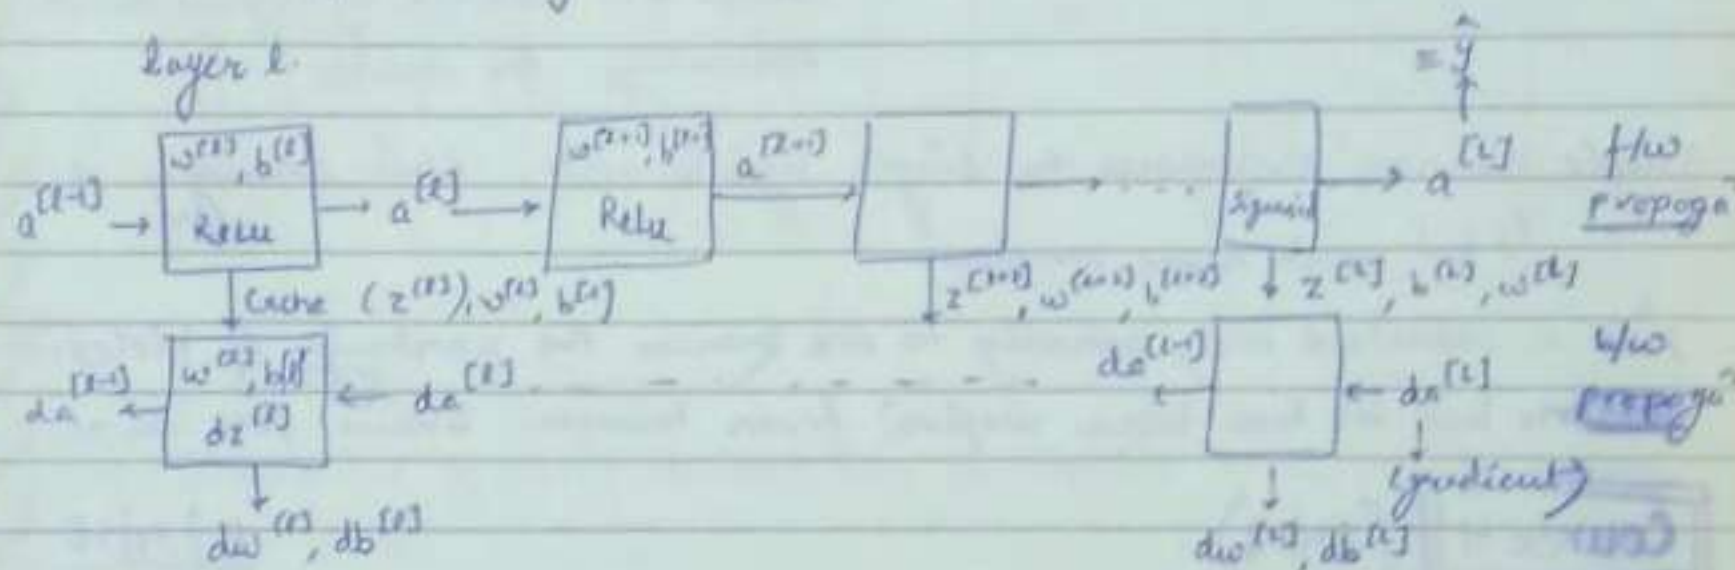 layer l.
= ŷ
w[l], b[l]
w[l+1], b[l+1]
a[l+1]
a[l-1] → Relu → a[l] → Relu → → .... Sigmoid → a[L] f/w
propoga
Cache (z[l]), w[l], b[l]
z[l+2], w[l+2], b[l+2]
z[L], b[L], w[L]
da[l-1] ← w[l], b[l] ← da[l] - - - - - da[l-1] ← ← da[L] b/w
dz[l]
propoga
(gradient)
dw[l], db[l]
dw[L], db[L]